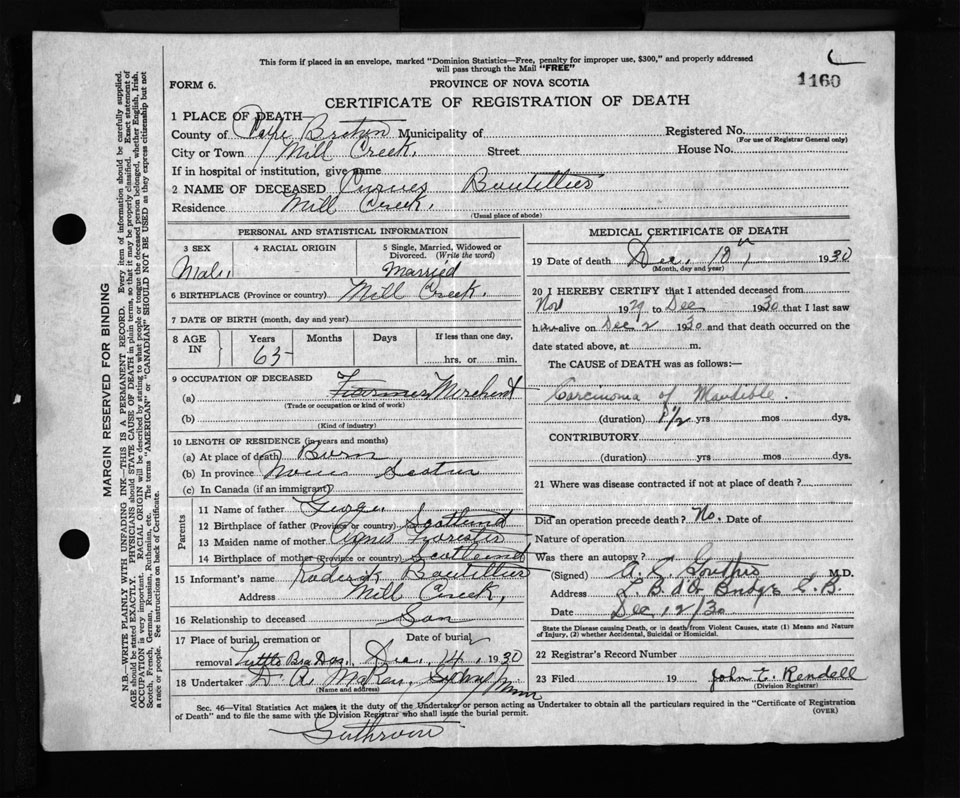 This form if placed in an envelope, marked "Dominion Statistics—Free, penalty for improper use, $300," and properly addressed
will pass through the Mail "FREE"
1160
FORM 6.
PROVINCE OF NOVA SCOTIA
CERTIFICATE OF REGISTRATION OF DEATH
1 PLACE OF DEATH—
County of Cape Breton Municipality of Registered No.
(For use of Registrar General only)
City or Town Mill Creek. Street House No.
If in hospital or institution, give name
2 NAME OF DECEASED Boutillier
Residence Mill Creek.
(Usual place of abode)
PERSONAL AND STATISTICAL INFORMATION
3 SEX 4 RACIAL ORIGIN 5 Single, Married, Widowed or
Divorced. (Write the word)
Male Married
6 BIRTHPLACE (Province or country) Mill Creek.
7 DATE OF BIRTH (month, day and year)
8 AGE IN Years Months Days If less than one day,
63 hrs. or min.
9 OCCUPATION OF DECEASED
(a) Merchent
(Trade or occupation or kind of work)
(b)
(Kind of industry)
10 LENGTH OF RESIDENCE (in years and months)
(a) At place of death) Born
(b) In province Nova Scotia
(c) In Canada (if an immigrant)
Parents
11 Name of father George.
12 Birthplace of father (Province or country) Scotland
13 Maiden name of mother Agnes Forester
14 Birthplace of mother (Province or country) Scotland
15 Informant's name Roderick Boutillier
Address Mill Creek,
16 Relationship to deceased Son
17 Place of burial, cremation or Date of burial
removal Little Bras Dor. Dec. 14, 1930
18 Undertaker Sydney Mines
(Name and address)
MEDICAL CERTIFICATE OF DEATH
19 Date of death Dec. 1930
(Month, day and year)
20 I HEREBY CERTIFY that I attended deceased from
Nov 1929 to Dec 1930 that I last saw
him alive on Dec 2 1930 and that death occurred on the
date stated above, at m.
The CAUSE OF DEATH was as follows:—
Carcinoma of Mandible.
(duration) 1 1/2 yrs mos dys.
CONTRIBUTORY
(duration) yrs mos dys.
21 Where was disease contracted if not at place of death?
Did an operation precede death? No. Date of
Nature of operation
Was there an autopsy?
(Signed) M.D.
Address Bridge C.B.
Date Dec 12/30
State the Disease causing Death, or in death from Violent Causes, state (1) Means and Nature
of Injury, (2) whether Accidental, Suicidal or Homicidal.
22 Registrar's Record Number
23 Filed 19 John E. Rendell
(Division Registrar)
Sec. 46—Vital Statistics Act makes it the duty of the Undertaker or person acting as Undertaker to obtain all the particulars required in the "Certificate of Registration
of Death" and to file the same with the Division Registrar who shall issue the burial permit. (OVER)
MARGIN RESERVED FOR BINDING
N.B.—WRITE PLAINLY WITH UNFADING INK—THIS IS A PERMANENT RECORD. Every item of information should be carefully supplied.
AGE should be stated EXACTLY. PHYSICIANS should STATE CAUSE OF DEATH in plain terms, so that it may be properly classified. Exact statement of
OCCUPATION is very important. RACIAL ORIGIN will be described by stating to what people or tongue the deceased person belonged, whether English, Irish,
Scotch, French, German, Russian, Ruthenian, etc. The terms "AMERICAN" or "CANADIAN" SHOULD NOT BE USED as they express citizenship but not
a race or people. See instructions on back of Certificate.